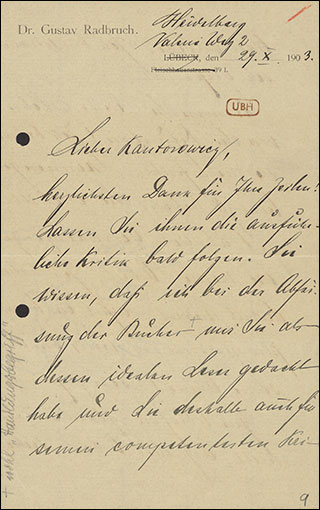 Dr. Gustav Radbruch.
Heidelberg
LÜBECK, den 29. X. 1903.
Fleischhauerstrasse
UBH
Lieber Kantorowicz,
herzlichsten Dank für Ihre Zeilen!
Lassen Sie ihnen die ausführ-
liche Kritik bald folgen. Sie
wissen, daß ich bei der Abfas-
sung der Bücher + nur Sie als
dessen idealen Leser gedacht
habe und Sie deshalb auch für
seinen competentesten Kri-
+ "Handlungsbegriff"
9